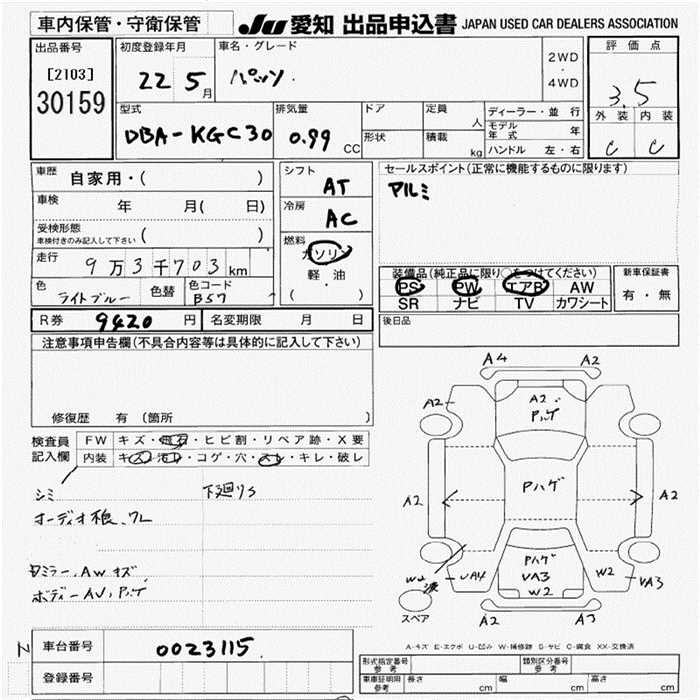 車内保管・守衛保管
JU 愛知 出品申込書 JAPAN USED CAR DEALERS ASSOCIATION
出品番号
[2103]
30159
初度登録年月
22 5月
車名・グレード
パッソ
2WD
・
4WD
評価点
3.5
外装 内装
C C
型式
DBA-KGC30
排気量
0.99 CC
ドア
形状
定員 人
積載 kg
ディーラー・並行
モデル年式 年
ハンドル 左・右
車歴 自家用・( )
車検 年 月( 日)
受検形態
車検付きのみ記入して下さい ( )
走行 9万3千703km
色 ライトブルー 色替 色コード B57
シフト AT
冷房 AC
燃料
ガソリン
軽・油
( )
セールスポイント(正常に機能するものに限ります)
アルミ
装備品(純正品に限り○をつけてください)
PS PW エアB AW
SR ナビ TV カワシート
新車保証書
有・無
R券 9420円 名変期限 月 日
後日品
注意事項申告欄(不具合内容等は具体的に記入して下さい)
修復歴 有(箇所 )
検査員記入欄
FW キズ・飛石・ヒビ割・リペア跡・X要
内装 キズ・汚レ・コゲ・穴・スレ・キレ・破レ
シミ
下廻りS
オーディオ
ミラー、AWキズ
A4 A2
A2
A2
Pハゲ
A2
Pハゲ
A2
W2
UA4
Pハゲ
VA3
W2
W2
VA3
スペア
A2 A3
A-キズ E-エクボ U-凹み W-補修跡 S-サビ C-腐食 XX-交換済
車台番号 0023115
登録番号
形式指定番号
参考
類別区分番号
参考
車庫証明用
参考
長さ cm 幅 cm 高さ cm